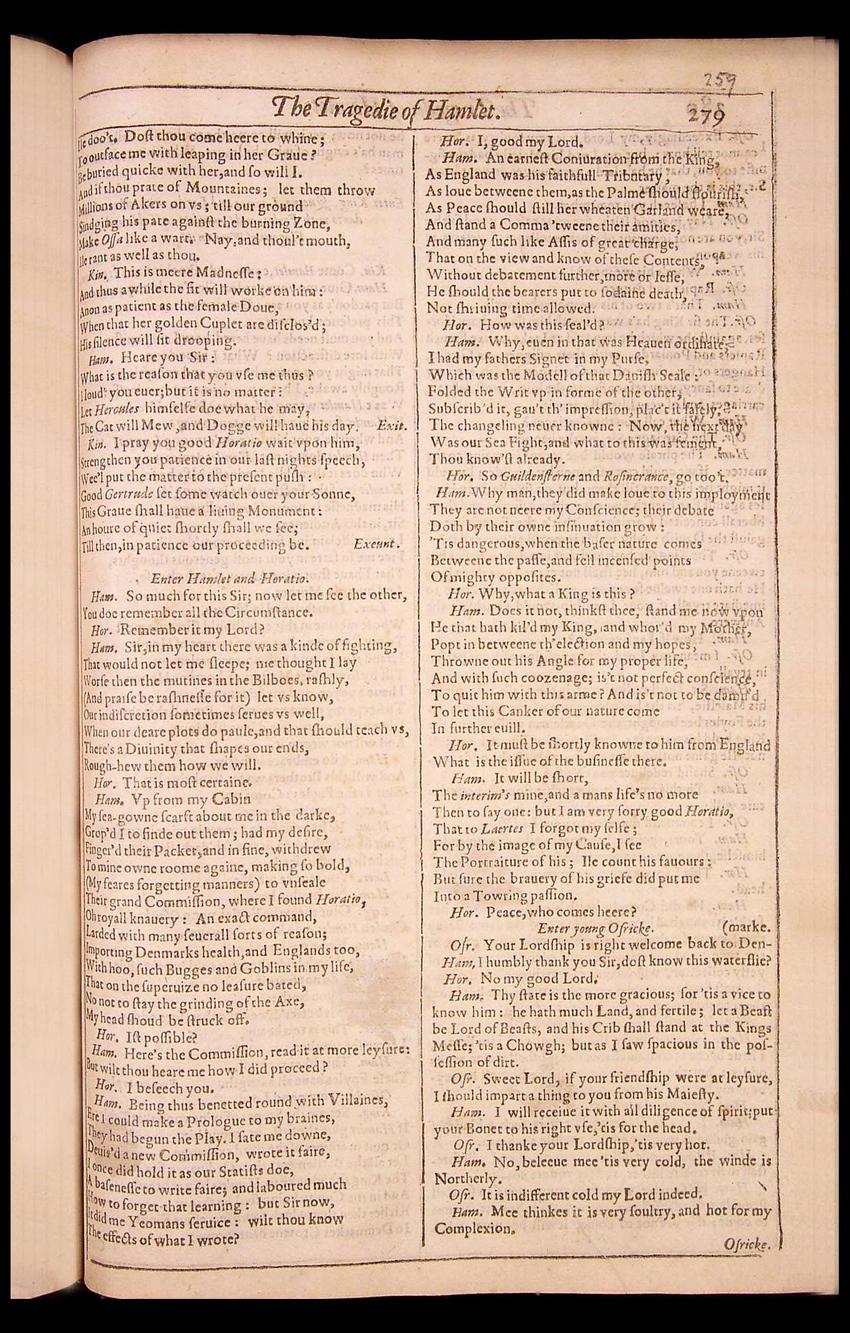 259
The Tragedie of Hamlet. 279
Ile doo't. Dost thou come heere to whine;
To outface me with leaping in her Graue?
Be buried quicke with her, and so will I.
And if thou prate of Mountaines; let them throw
Millions of Akers on vs; till our ground
Sindging his pate against the burning Zone,
Make Ossa like a wart. Nay, and thoul't mouth,
Ile rant as well as thou.
Kin. This is meere Madnesse:
And thus awhile the fit will worke on him:
Anon as patient as the female Doue,
When that her golden Cuplet are disclos'd;
His silence will sit drooping.
Ham. Heare you Sir:
What is the reason that you vse me thus?
I loud' you euer; but it is no matter:
Let Hercules himselfe doe what he may,
The Cat will Mew, and Dogge will haue his day. Exit.
Kin. I pray you good Horatio wait vpon him,
Strengthen you patience in our last nights speech,
Wee'l put the matter to the present push:
Good Gertrude set some watch ouer your Sonne,
This Graue shall haue a liuing Monument:
An houre of quiet shortly shall we see;
Till then, in patience our proceeding be. Exeunt.
Enter Hamlet and Horatio.
Ham. So much for this Sir; now let me see the other,
You doe remember all the Circumstance.
Hor. Remember it my Lord?
Ham. Sir, in my heart there was a kinde of fighting,
That would not let me sleepe; me thought I lay
Worse then the mutines in the Bilboes, rashly,
(And praise be rashnesse for it) let vs know,
Our indiscretion sometimes serues vs well,
When our deare plots do paule, and that should teach vs,
There's a Diuinity that shapes our ends,
Rough-hew them how we will.
Hor. That is most certaine.
Ham. Vp from my Cabin
My sea-gowne scarft about me in the darke,
Grop'd I to finde out them; had my desire,
Finger'd their Packet, and in fine, withdrew
To mine owne roome againe, making so bold,
(My feares forgetting manners) to vnseale
Their grand Commission, where I found Horatio,
Oh royall knauery: An exact command,
Larded with many seuerall sorts of reason;
Importing Denmarks health, and Englands too,
With hoo, such Bugges and Goblins in my life,
That on the superuize no leasure bated,
No not to stay the grinding of the Axe,
My head shoud be struck off.
Hor. Ist possible?
Ham. Here's the Commission, read it at more leysure:
But wilt thou heare me how I did proceed?
Hor. I beseech you.
Ham. Being thus benetted round with Villaines,
Ere I could make a Prologue to my braines,
They had begun the Play. I sate me downe,
Deuis'd a new Commission, wrote it faire,
I once did hold it as our Statists doe,
A basenesse to write faire; and laboured much
How to forget that learning: but Sir now,
It did me Yeomans seruice: wilt thou know
The effects of what I wrote?
Hor. I, good my Lord.
Ham. An earnest Coniuration from the King,
As England was his faithfull Tributary,
As loue betweene them, as the Palme should flourish,
As Peace should still her wheaten Garland weare,
And stand a Comma 'tweene their amities,
And many such like Assis of great charge,
That on the view and know of these Contents,
Without debatement further, more or lesse,
He should the bearers put to sodaine death,
Not shriuing time allowed.
Hor. How was this seal'd?
Ham. Why, euen in that was Heauen ordinate;
I had my fathers Signet in my Purse,
Which was the Modell of that Danish Seale:
Folded the Writ vp in forme of the other,
Subscrib'd it, gau't th' impression, plac't it safely,
The changeling neuer knowne: Now, the next day
Was our Sea Fight, and what to this was sement,
Thou know'st already.
Hor. So Guildensterne and Rosincrance, go too't.
Ham. Why man, they did make loue to this imployment
They are not neere my Conscience; their debate
Doth by their owne insinuation grow:
'Tis dangerous, when the baser nature comes
Betweene the passe, and fell incensed points
Of mighty opposites.
Hor. Why, what a King is this?
Ham. Does it not, thinkst thee, stand me now vpon
He that hath kil'd my King, and whor'd my Mother,
Popt in betweene th'election and my hopes,
Throwne out his Angle for my proper life,
And with such coozenage; is't not perfect conscience,
To quit him with this arme? And is't not to be damn'd
To let this Canker of our nature come
In further euill.
Hor. It must be shortly knowne to him from England
What is the issue of the businesse there.
Ham. It will be short,
The interim's mine, and a mans life's no more
Then to say one: but I am very sorry good Horatio,
That to Laertes I forgot my selfe;
For by the image of my Cause, I see
The Portraiture of his; Ile count his fauours:
But sure the brauery of his griefe did put me
Into a Towring passion.
Hor. Peace, who comes heere?
Enter young Osricke. (marke.
Osr. Your Lordship is right welcome back to Den-
Ham. I humbly thank you Sir, dost know this waterflie?
Hor. No my good Lord.
Ham. Thy state is the more gracious; for 'tis a vice to
know him: he hath much Land, and fertile; let a Beast
be Lord of Beasts, and his Crib shall stand at the Kings
Messe; 'tis a Chowgh; but as I saw spacious in the pos-
session of dirt.
Osr. Sweet Lord, if your friendship were at leysure,
I should impart a thing to you from his Maiesty.
Ham. I will receiue it with all diligence of spirit; put
your Bonet to his right vse, 'tis for the head.
Osr. I thanke your Lordship, 'tis very hot.
Ham. No, beleeue mee 'tis very cold, the winde is
Northerly.
Osr. It is indifferent cold my Lord indeed.
Ham. Mee thinkes it is very soultry, and hot for my
Complexion.
Osricke.